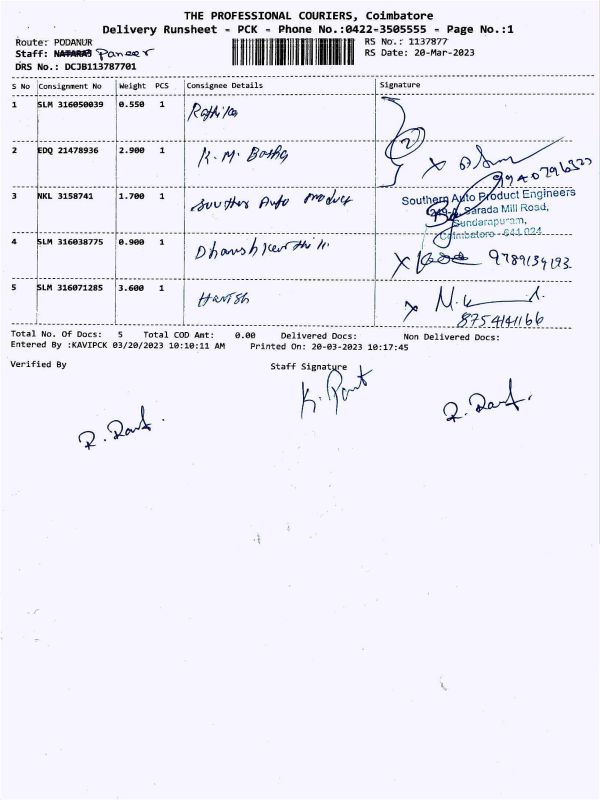 THE PROFESSIONAL COURIERS, Coimbatore
Delivery Runsheet - PCK - Phone No.:0422-3505555 - Page No.:1
Route: PODANUR
RS No.: 1137877
Staff: NATARAJ Paneer
RS Date: 20-Mar-2023
DRS No.: DCJB113787701
S No Consignment No Weight PCS Consignee Details Signature
1 SLM 316050039 0.550 1 Rathika
2
2 EDQ 21478936 2.900 1 K.M. Basha
9940796323
3 NKL 3158741 1.700 1 Souther Auto Product
Southern Auto Product Engineers
Sarada Mill Road,
Sundarapuram,
Coimbatore - 641 024.
4 SLM 316038775 0.900 1
9789139193
5 SLM 316071285 3.600 1 Harish
8754141166
Total No. Of Docs: 5 Total COD Amt: 0.00 Delivered Docs: Non Delivered Docs:
Entered By :KAVIPCK 03/20/2023 10:10:11 AM Printed On: 20-03-2023 10:17:45
Verified By Staff Signature